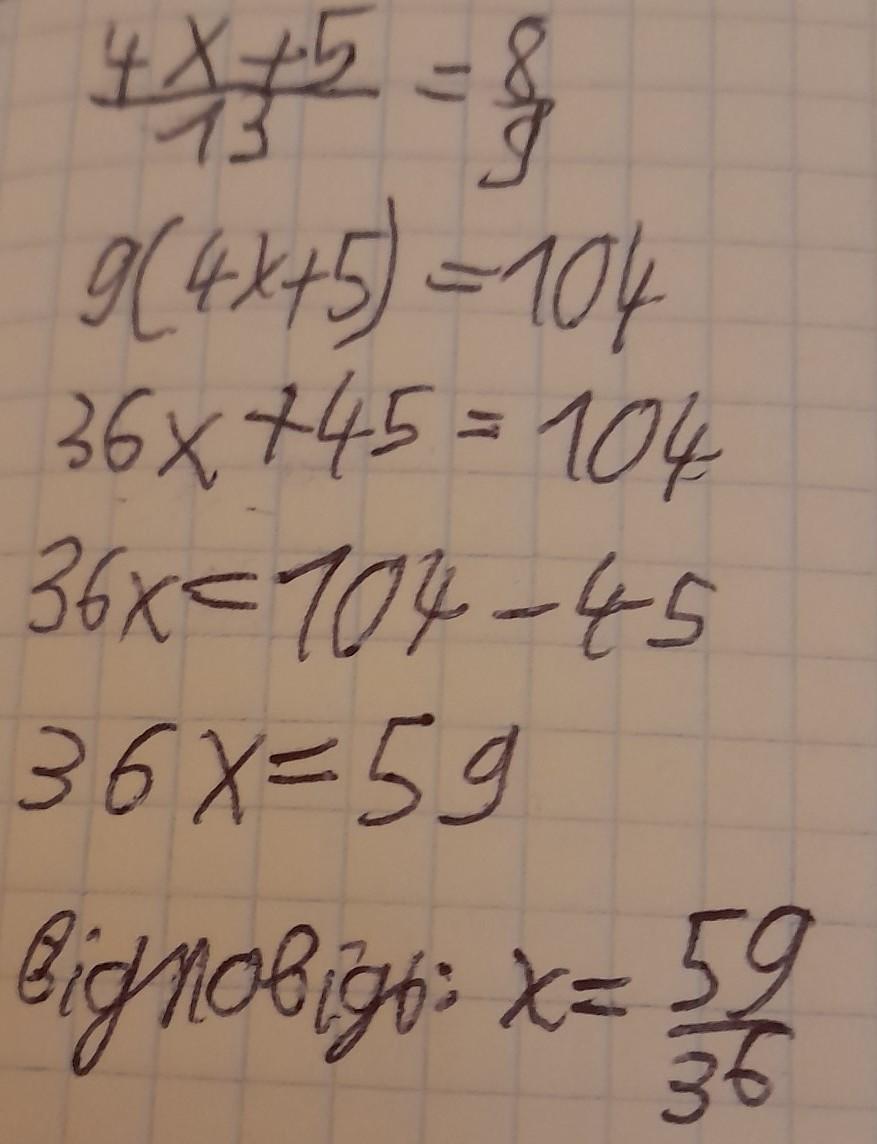 4x+5/13 = 8/9
9(4x+5)=104
36x+45=104
36x=104-45
36x=59
відповідь: x=59/36